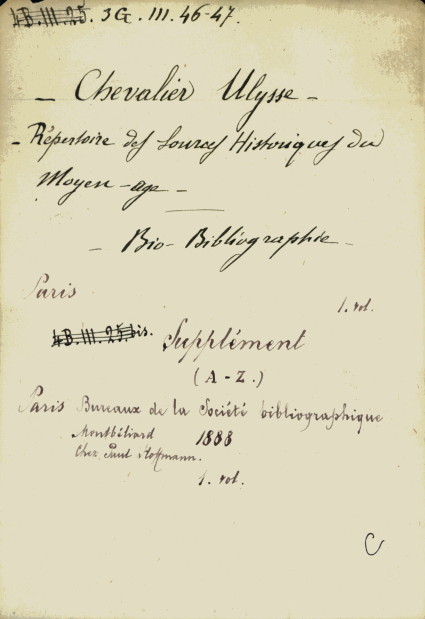 4B.III.25. 3G.III.46-47.
- Chevalier Ulysse -
- Répertoire des Sources Historiques du
Moyen-age -
- Bio-Bibliographie -
Paris
1. vol.
4B.III.25.bis. Supplément
(A-Z.)
Paris Bureaux de la Société bibliographique
Montbéliard 1888
Chez Paul Hoffmann.
1. vol.
C